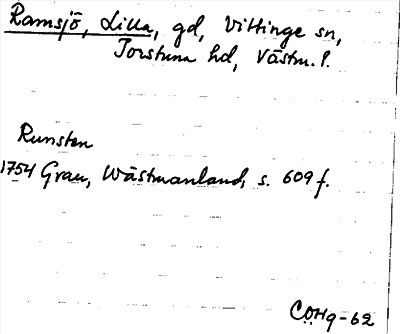 Ramsjö, Lilla, gd, Vittinge sn,
Torstuna hd, Västm. l.
Runsten
1754 Grau, Wästmanland, s. 609 f.
CÖHg-62